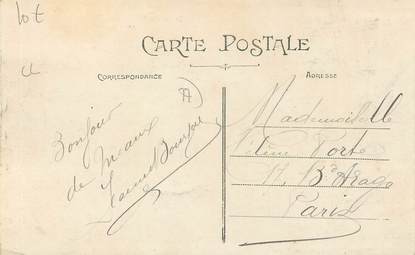 lot
CARTE POSTALE
CORRESPONDANCE
ADRESSE
Bonjour
de Meaux
Mademoiselle
Porte
17, Bd Arago
Paris